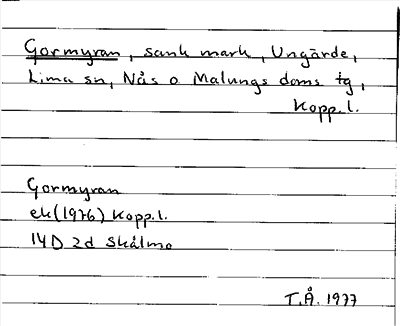 Gormyran, sank mark, Ungärde,
Lima sn, Nås o Malungs doms tg,
Kopp. l.
Gormyran
ek (1976) Kopp. l.
14D 2d Skålmo
T.Å. 1977